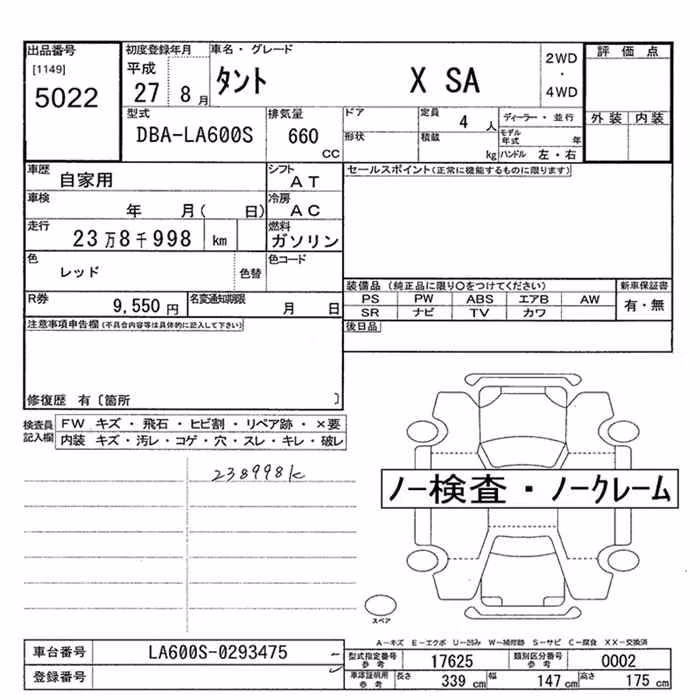 出品番号
[1149]
5022
初度登録年月
平成
27 8月
車名・グレード
タント X SA
2WD
・
4WD
評価点
外装 内装
型式
DBA-LA600S
排気量
660
CC
ドア
形状
定員
4人
積載
kg
ディーラー・並行
モデル年式 年
ハンドル 左・右
車歴
自家用
シフト
AT
セールスポイント(正常に機能するものに限ります)
車検
年 月( 日)
冷房
AC
走行
23万8千998 km
燃料
ガソリン
色
レッド
色替
色コード
装備品 (純正品に限り○をつけてください)
PS PW ABS エアB AW
SR ナビ TV カワ
新車保証書
有・無
R券
9,550円
名変通知期限
月 日
後日品
注意事項申告欄(不具合内容等は具体的に記入して下さい)
修復歴 有〔箇所 〕
検査員
記入欄
FW キズ・飛石・ヒビ割・リペア跡・×要
内装 キズ・汚レ・コゲ・穴・スレ・キレ・破レ
238998k
ノー検査・ノークレーム
スペア
A-キズ E-エクボ U-凹み W-補修跡 S-サビ C-腐食 XX-交換済
車台番号
LA600S-0293475
登録番号
型式指定番号
参考
17625
類別区分番号
参考
0002
車庫証明用
参考
長さ
339 cm
幅
147 cm
高さ
175 cm